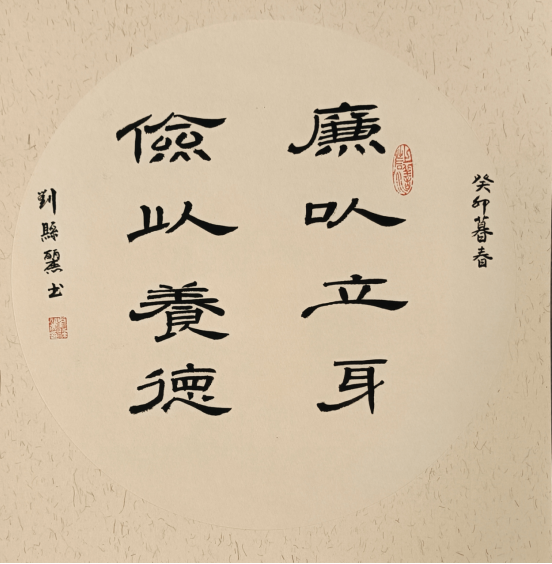 癸卯暮春
廉以立身
儉以養德
刘 书